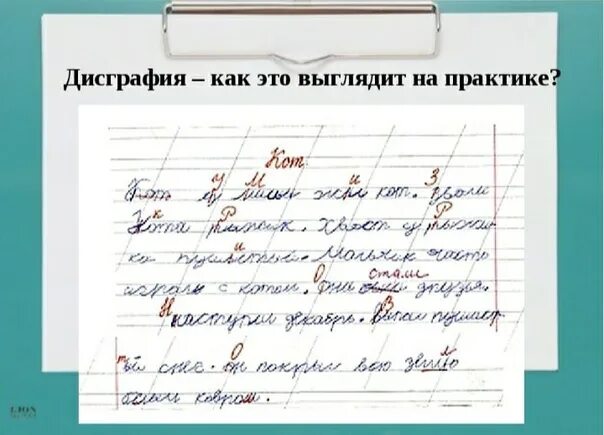 Дисграфия – как это выглядит на практике?
Кот.
у М и З
Кот миши жил кот. звали
к Р Р
Кота рыжик. Хвост у рыжи
и
ка пушистый. Мальчик часто
О стали
играли с котом. Они друзья.
Н В
наступил декабрь. Выпал пушист
т О л
ый снег. он покрыл всю землю
белым ковром.
LION